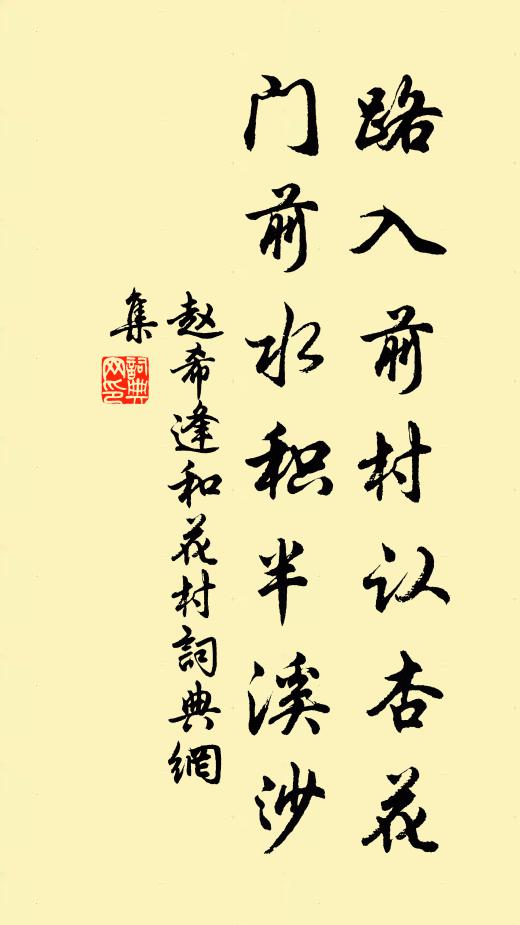 路入前村认杏花
门前水积半溪沙
赵希逢和花村詞典網
集
詞典
网印